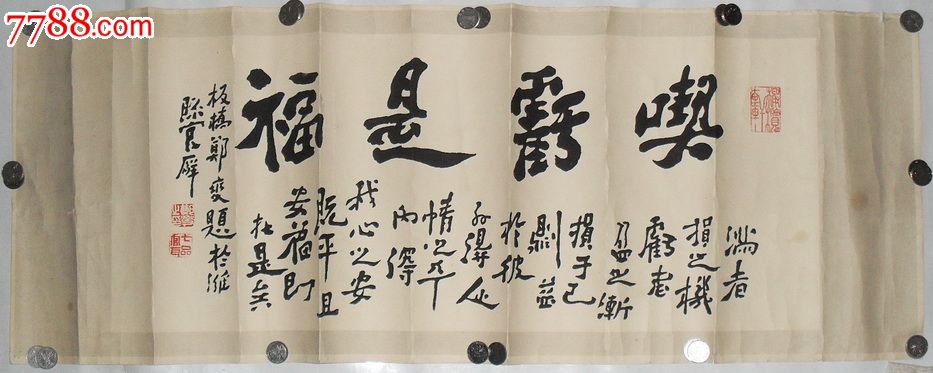 7788.com
喫虧是福
滿者
損之機
虧者
盈之漸
損于己
則益
於彼
外得人
情之平
内得
我心之安
既平且
安福即
在是矣
板橋鄭燮題於濰
縣官廨
七品官耳